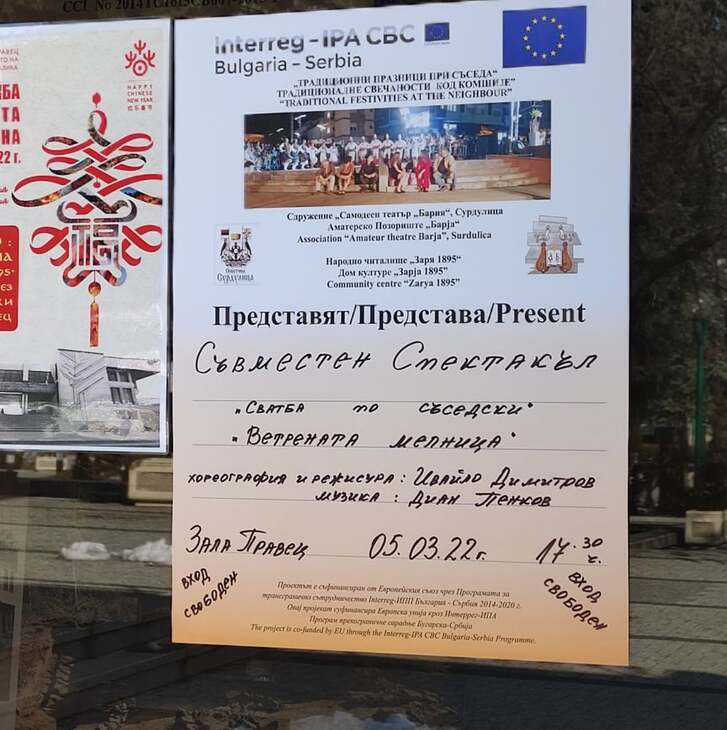 CCI No 2014TC16I5CB007
Interreg - IPA CBC
Bulgaria - Serbia
„ТРАДИЦИОННИ ПРАЗНИЦИ ПРИ СЪСЕДА”
ТРАДИЦИОНАЛНЕ СВЕЧАНОСТИ КОД КОМШИЈЕ”
“TRADITIONAL FESTIVITIES AT THE NEIGHBOUR”
Сдружение „Самодеен театър „Бария“, Сурдулица
Аматерско Позориште „Барја“
Association “Amateur theatre Barja”, Surdulica
Општина
Сурдулица
Народно читалище „Заря 1895“
Дом културе „Зарја 1895”
Community centre “Zarya 1895”
Представят/Представа/Present
Съвместен Спектакъл
„Сватба по съседски“
„Ветрената мелница“
хореография и режисура: Ивайло Димитров
музика: Диан Пенков
Зала Правец 05.03.22г. 17.30 ч.
вход
свободен
вход
свободен
Проектът е съфинансиран от Европейския съюз чрез Програмата за
трансгранично сътрудничество Interreg-ИПП България - Сърбия 2014-2020 г.
Овај пројекат суфинансира Европска унија кроз Интеррег-ИПА
Програм прекограничне сарадње Бугарска-Србија
The project is co-funded by EU through the Interreg-IPA CBC Bulgaria-Serbia Programme.
HAPPY
CHINESE
NEW YEAR
欢乐春节